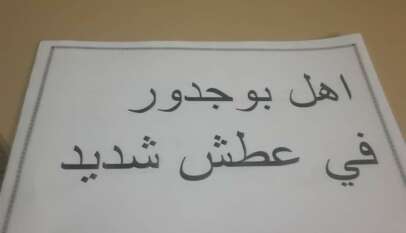 اهل بوجدور
في عطش شديد